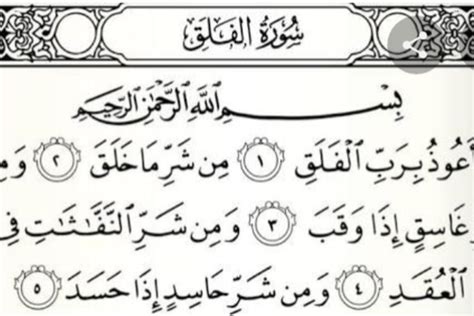 سُورَةُ الفَلَقِ
بِسْمِ اللَّهِ الرَّحْمَٰنِ الرَّحِيمِ
أَعُوذُ بِرَبِّ ٱلْفَلَقِ ١ مِن شَرِّ مَا خَلَقَ ٢ وَمِ
غَاسِقٍ إِذَا وَقَبَ ٣ وَمِن شَرِّ ٱلنَّفَّٰثَٰتِ فِى
ٱلْعُقَدِ ٤ وَمِن شَرِّ حَاسِدٍ إِذَا حَسَدَ ٥